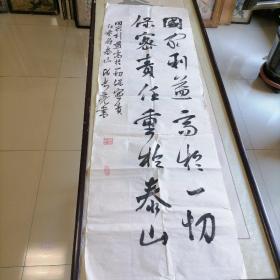 國家利益高於一切
保密責任重於泰山
國家利益高於一切保密責
任重於泰山